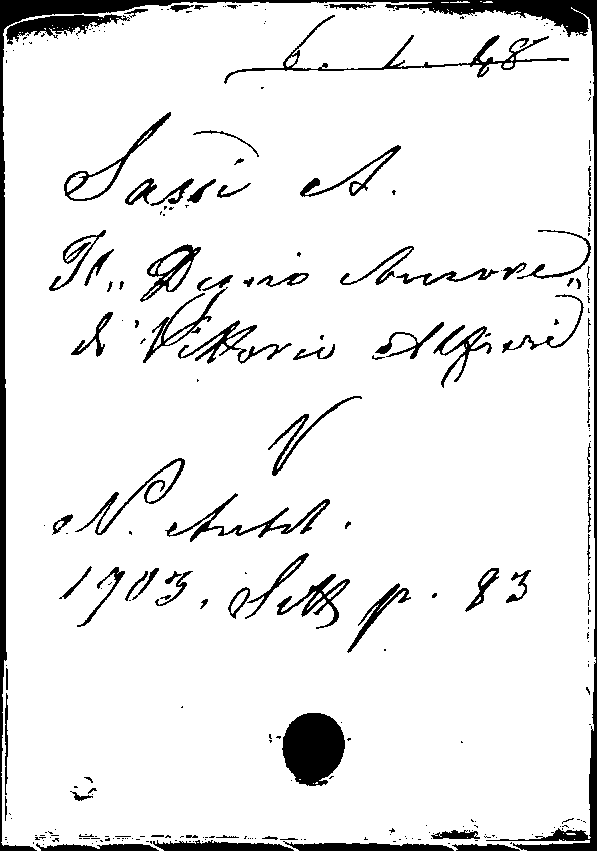 6. 1. 48
Sassi A.
Il „ Degno Amore „
di Vittorio Alfieri
V
N. Antol.
1903. Sett p. 83